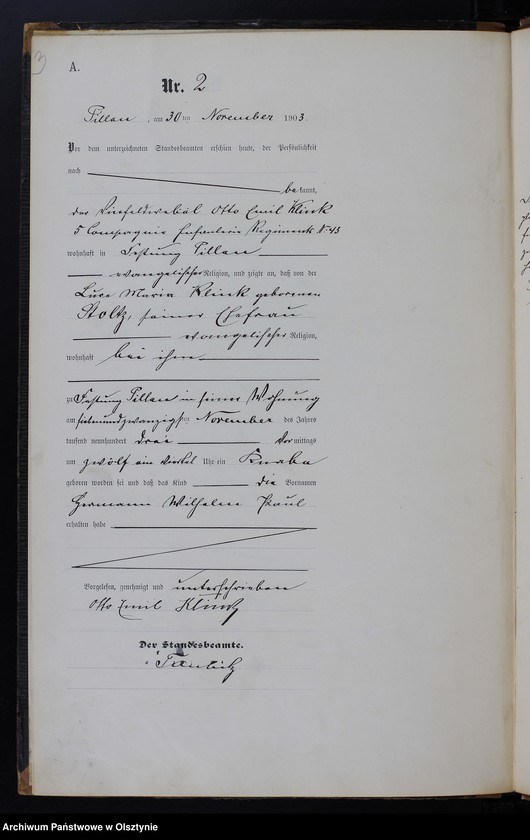 3
A.
Nr. 2
Pillau, am 30 ten November 1903.
Vor dem unterzeichneten Standesbeamten erschien heute, der Persönlichkeit
nach
bekannt,
der Vizefeldwebel Otto Emil Klink
5 Compagnie Infanterie Regiment No 43
wohnhaft in Festung Pillau
evangelischer Religion, und zeigte an, daß von der
Maria Klink geborenen
Stoltz, seiner Ehefrau
evangelischer Religion,
wohnhaft bei ihm
zu Festung Pillau in seiner Wohnung
am siebenundzwanzigsten November des Jahres
tausend neunhundert drei Vormittags
um zwölf ein viertel Uhr ein Knabe
geboren worden sei und daß das Kind die Vornamen
Hermann Wilhelm Paul
erhalten habe
Vorgelesen, genehmigt und unterschrieben
Otto Emil Klink
Der Standesbeamte.
Archiwum Państwowe w Olsztynie